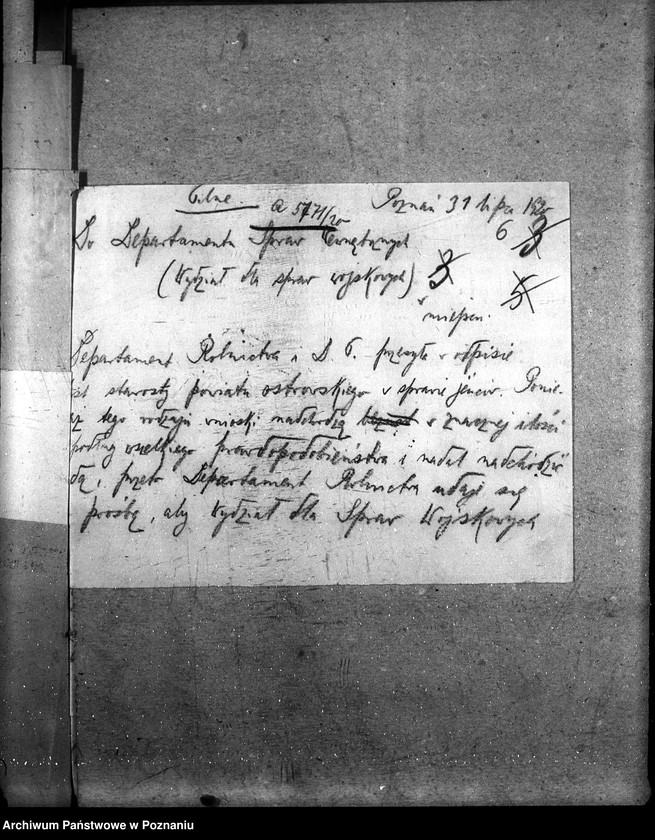 Pilne. A 5771/20 Poznań 31 lipca 1920
Do Departamentu Spraw Wewnętrznych 6 3
(Wydział dla spraw wojskowych) 3 5
w miejscu.
Departament Rolnictwa i D. P. przesyła w odpisie
list starosty powiatu ostrowskiego w sprawie jeńców. Ponie-
waż tego rodzaju wnioski nadchodzą w znacznej ilości
podług wszelkiego prawdopodobieństwa i nadal nadchodzić
będą, przeto Departament Rolnictwa udaje się
prośbą, aby Wydział dla Spraw Wojskowych
Archiwum Państwowe w Poznaniu